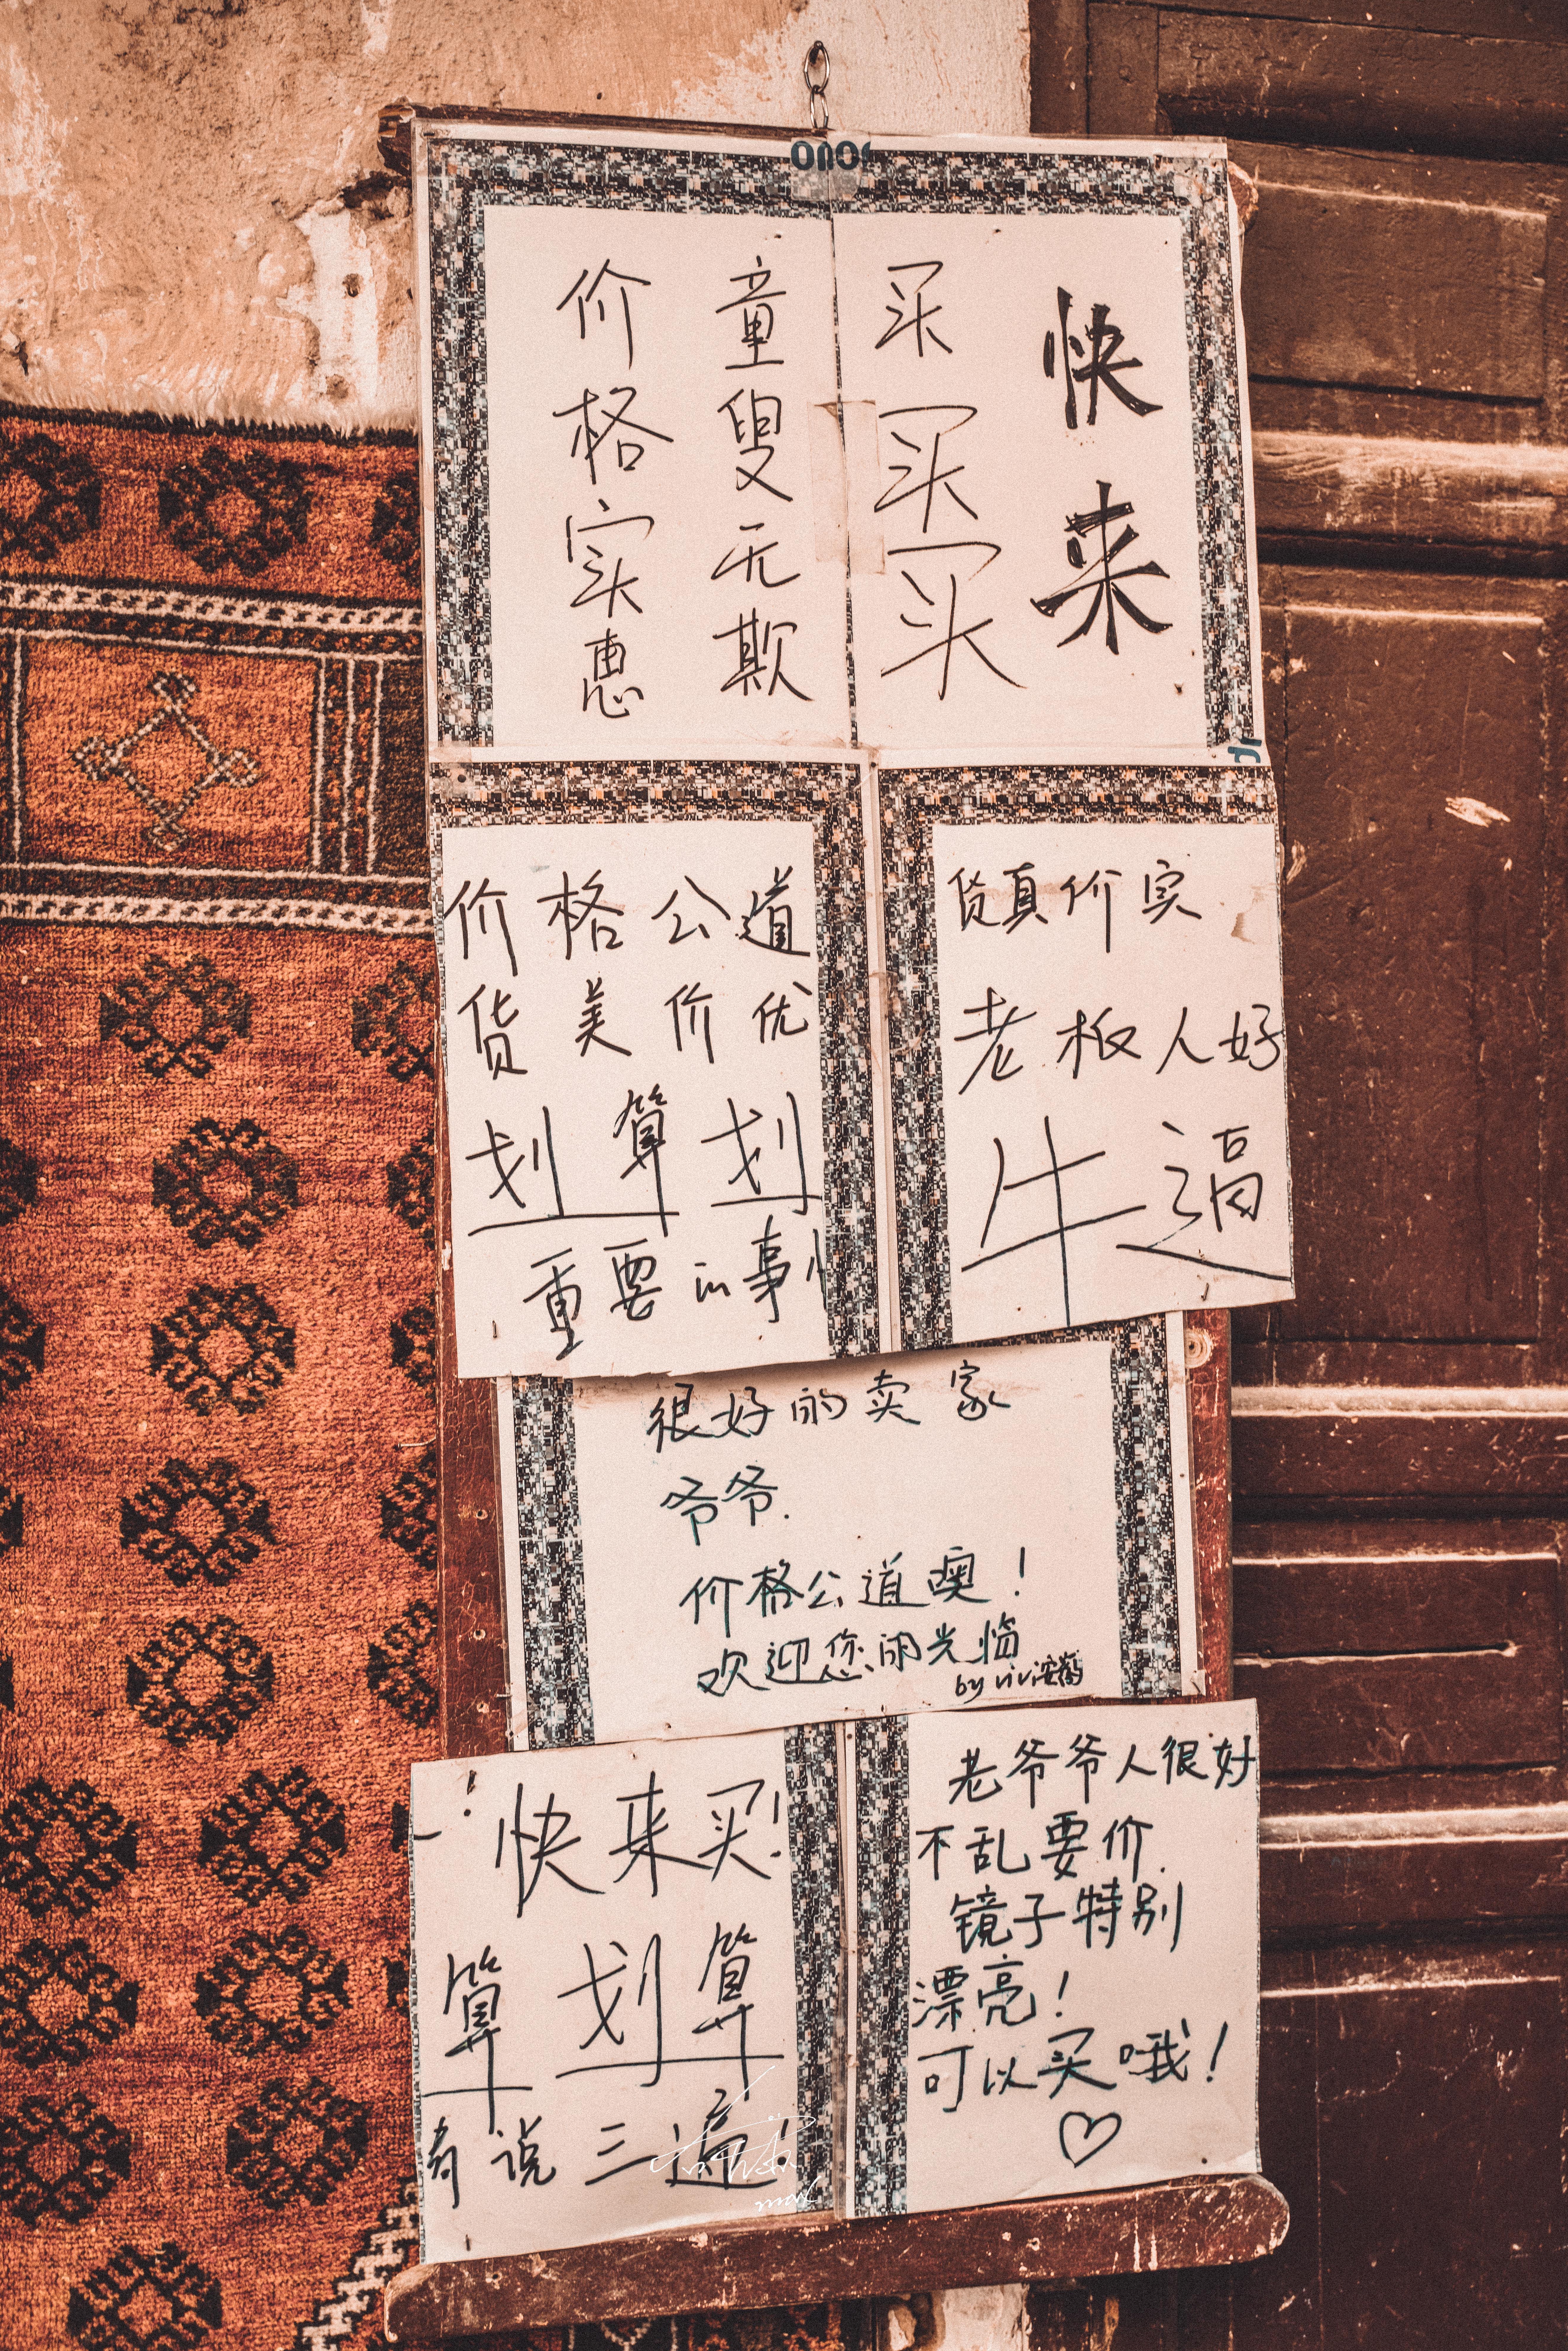 快来
买买买
童叟无欺
价格实惠
价格公道
货美价优
划算划
重要的事
货真价实
老板人好
牛逼
很好的卖家
爷爷.
价格公道噢!
欢迎您的光临
by vivi
!快来买!
算划算
说三遍!
老爷爷人很好
不乱要价.
镜子特别
漂亮!
可以买哦!